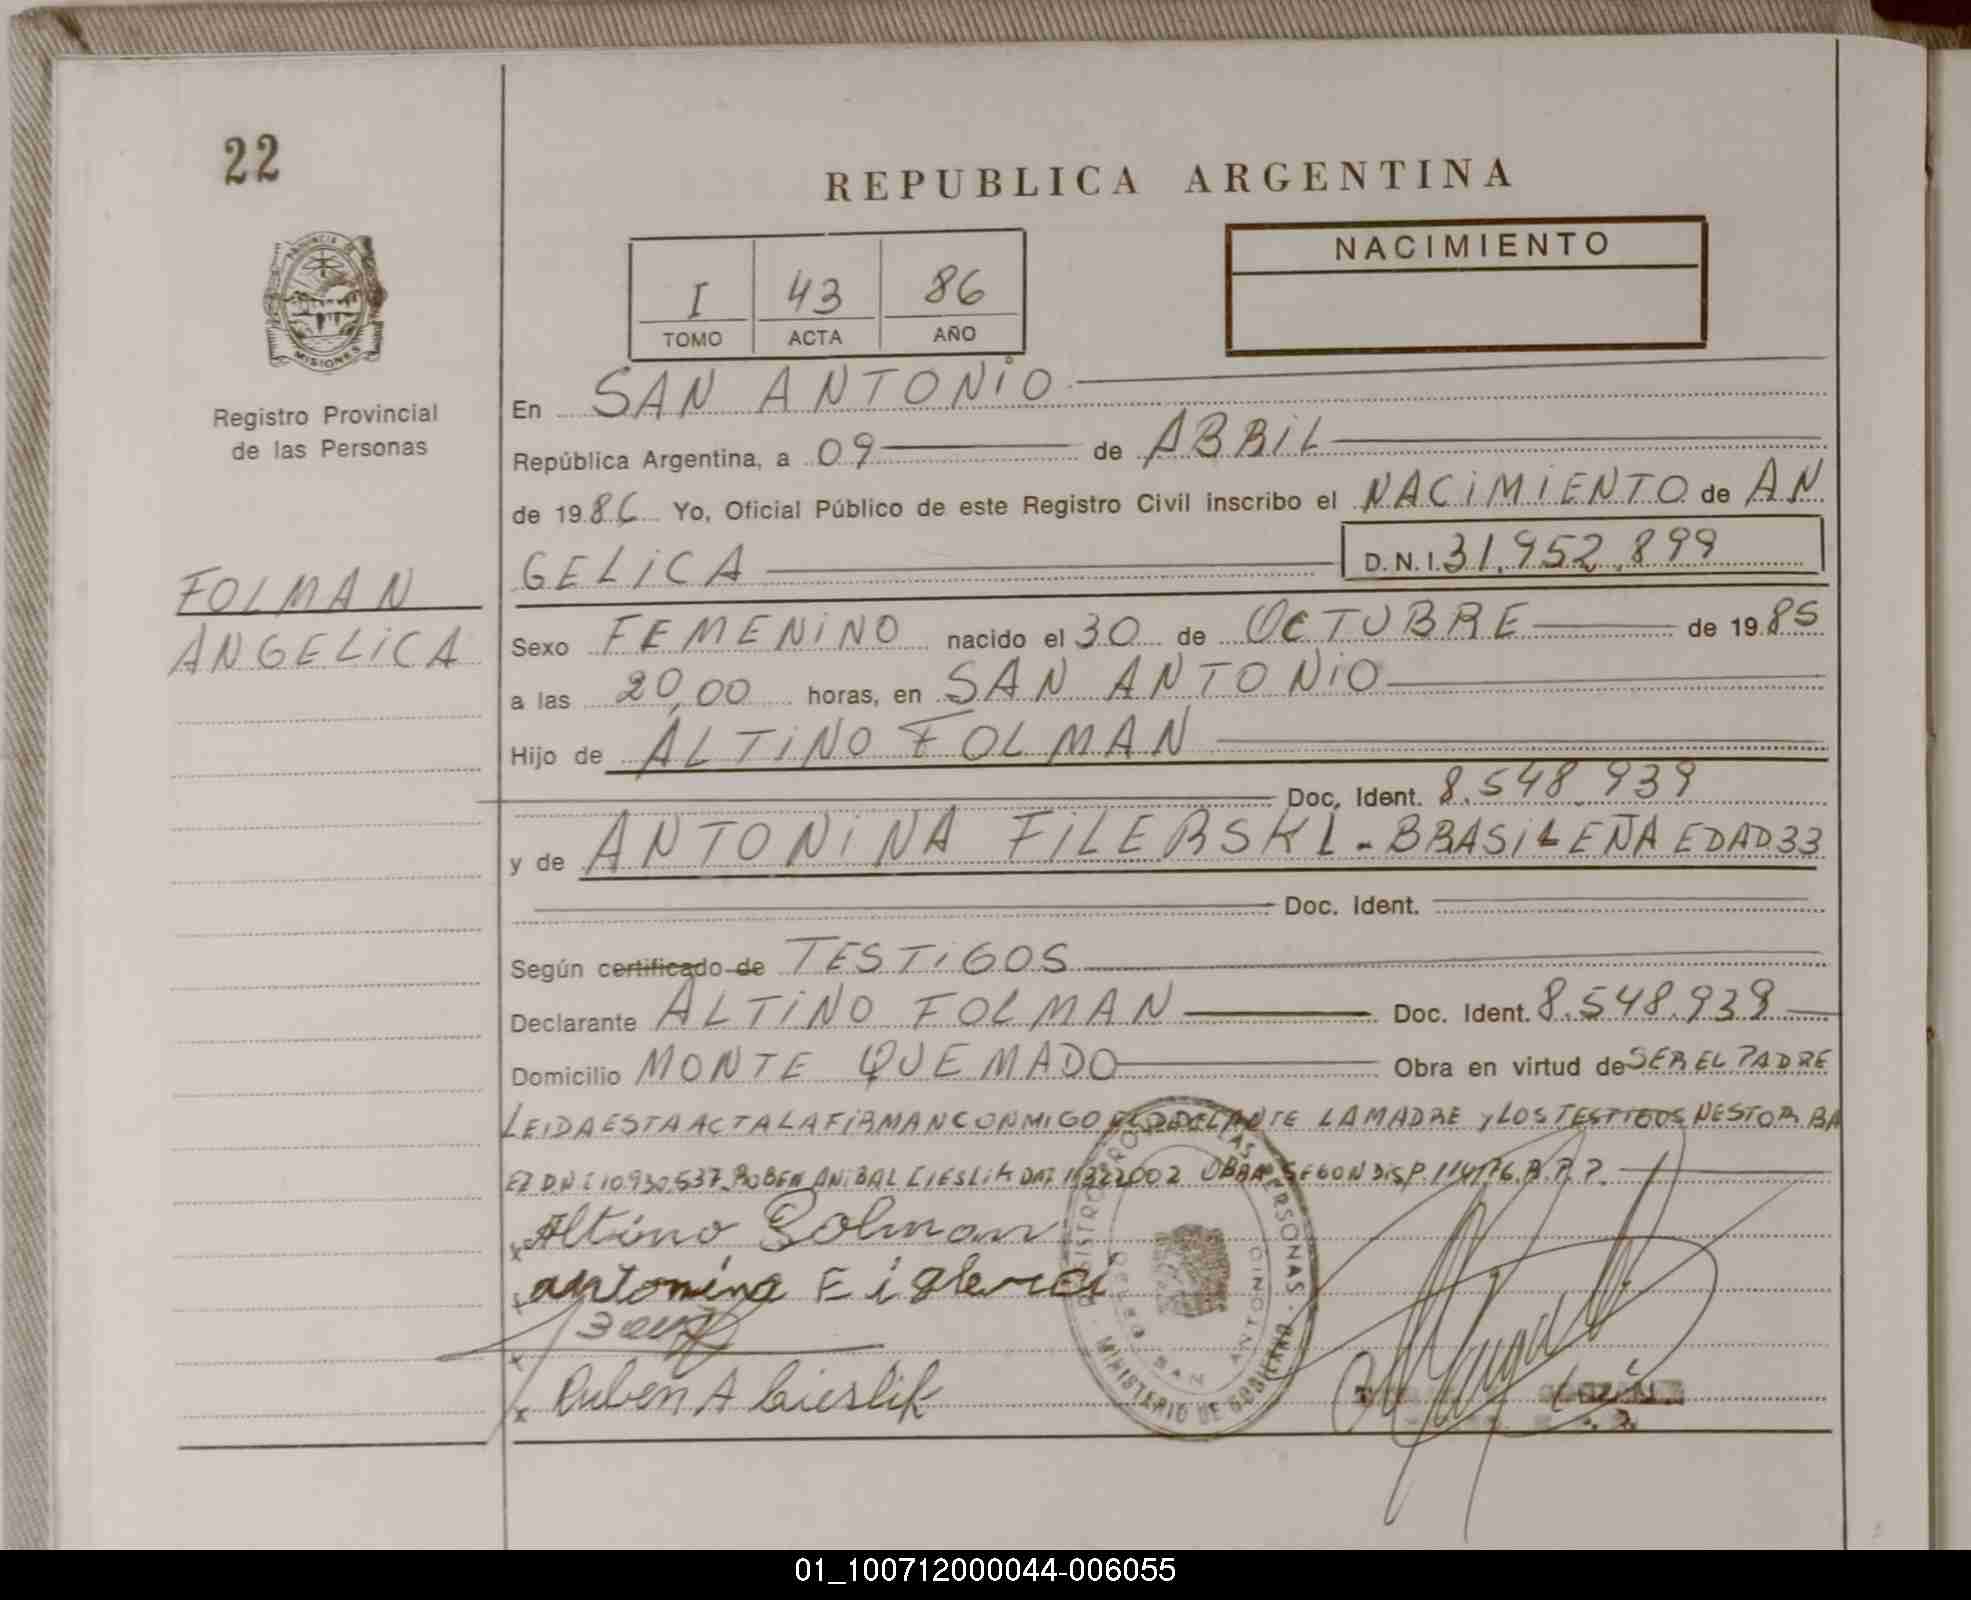 22
REPUBLICA ARGENTINA
PROVINCIA DE MISIONES
Registro Provincial
de las Personas
I 43 86
TOMO ACTA AÑO
NACIMIENTO
En SAN ANTONIO
República Argentina, a 09 de ABRIL
de 1986 Yo, Oficial Público de este Registro Civil inscribo el NACIMIENTO de AN
GELICA D.N.I. 31.952.899
FOLMAN
ANGELICA
Sexo FEMENINO nacido el 30 de OCTUBRE de 1985
a las 20,00 horas, en SAN ANTONIO
Hijo de ALTINO FOLMAN
Doc. Ident. 8.548.939
y de ANTONINA FILERSKI - BRASILEÑA EDAD 33
Doc. Ident.
Según certificado de TESTIGOS
Declarante ALTINO FOLMAN Doc. Ident. 8.548.939
Domicilio MONTE QUEMADO Obra en virtud de SER EL PADRE
LEIDA ESTA ACTA LA FIRMAN CONMIGO EL DECLANTE LA MADRE y LOS TESTIGOS NESTOR BA
EZ D.N.I 10.930.537 RUBEN ANIBAL CIESLIK DNI OBRA SEGUN DISP. 114/76. R.P.P.
Altino Folman
antonina
Ruben A Cieslik
REGISTRO PROV. DE LAS PERSONAS
SAN ANTONIO
MINISTERIO DE GOBIERNO
01_100712000044-006055